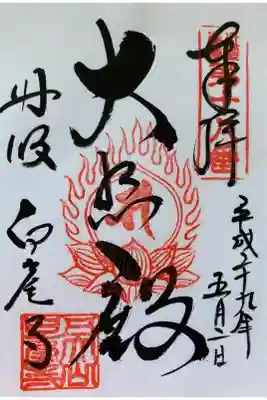 奉拝
平成二十九年
五月二日
大悲殿
丹波
白毫寺